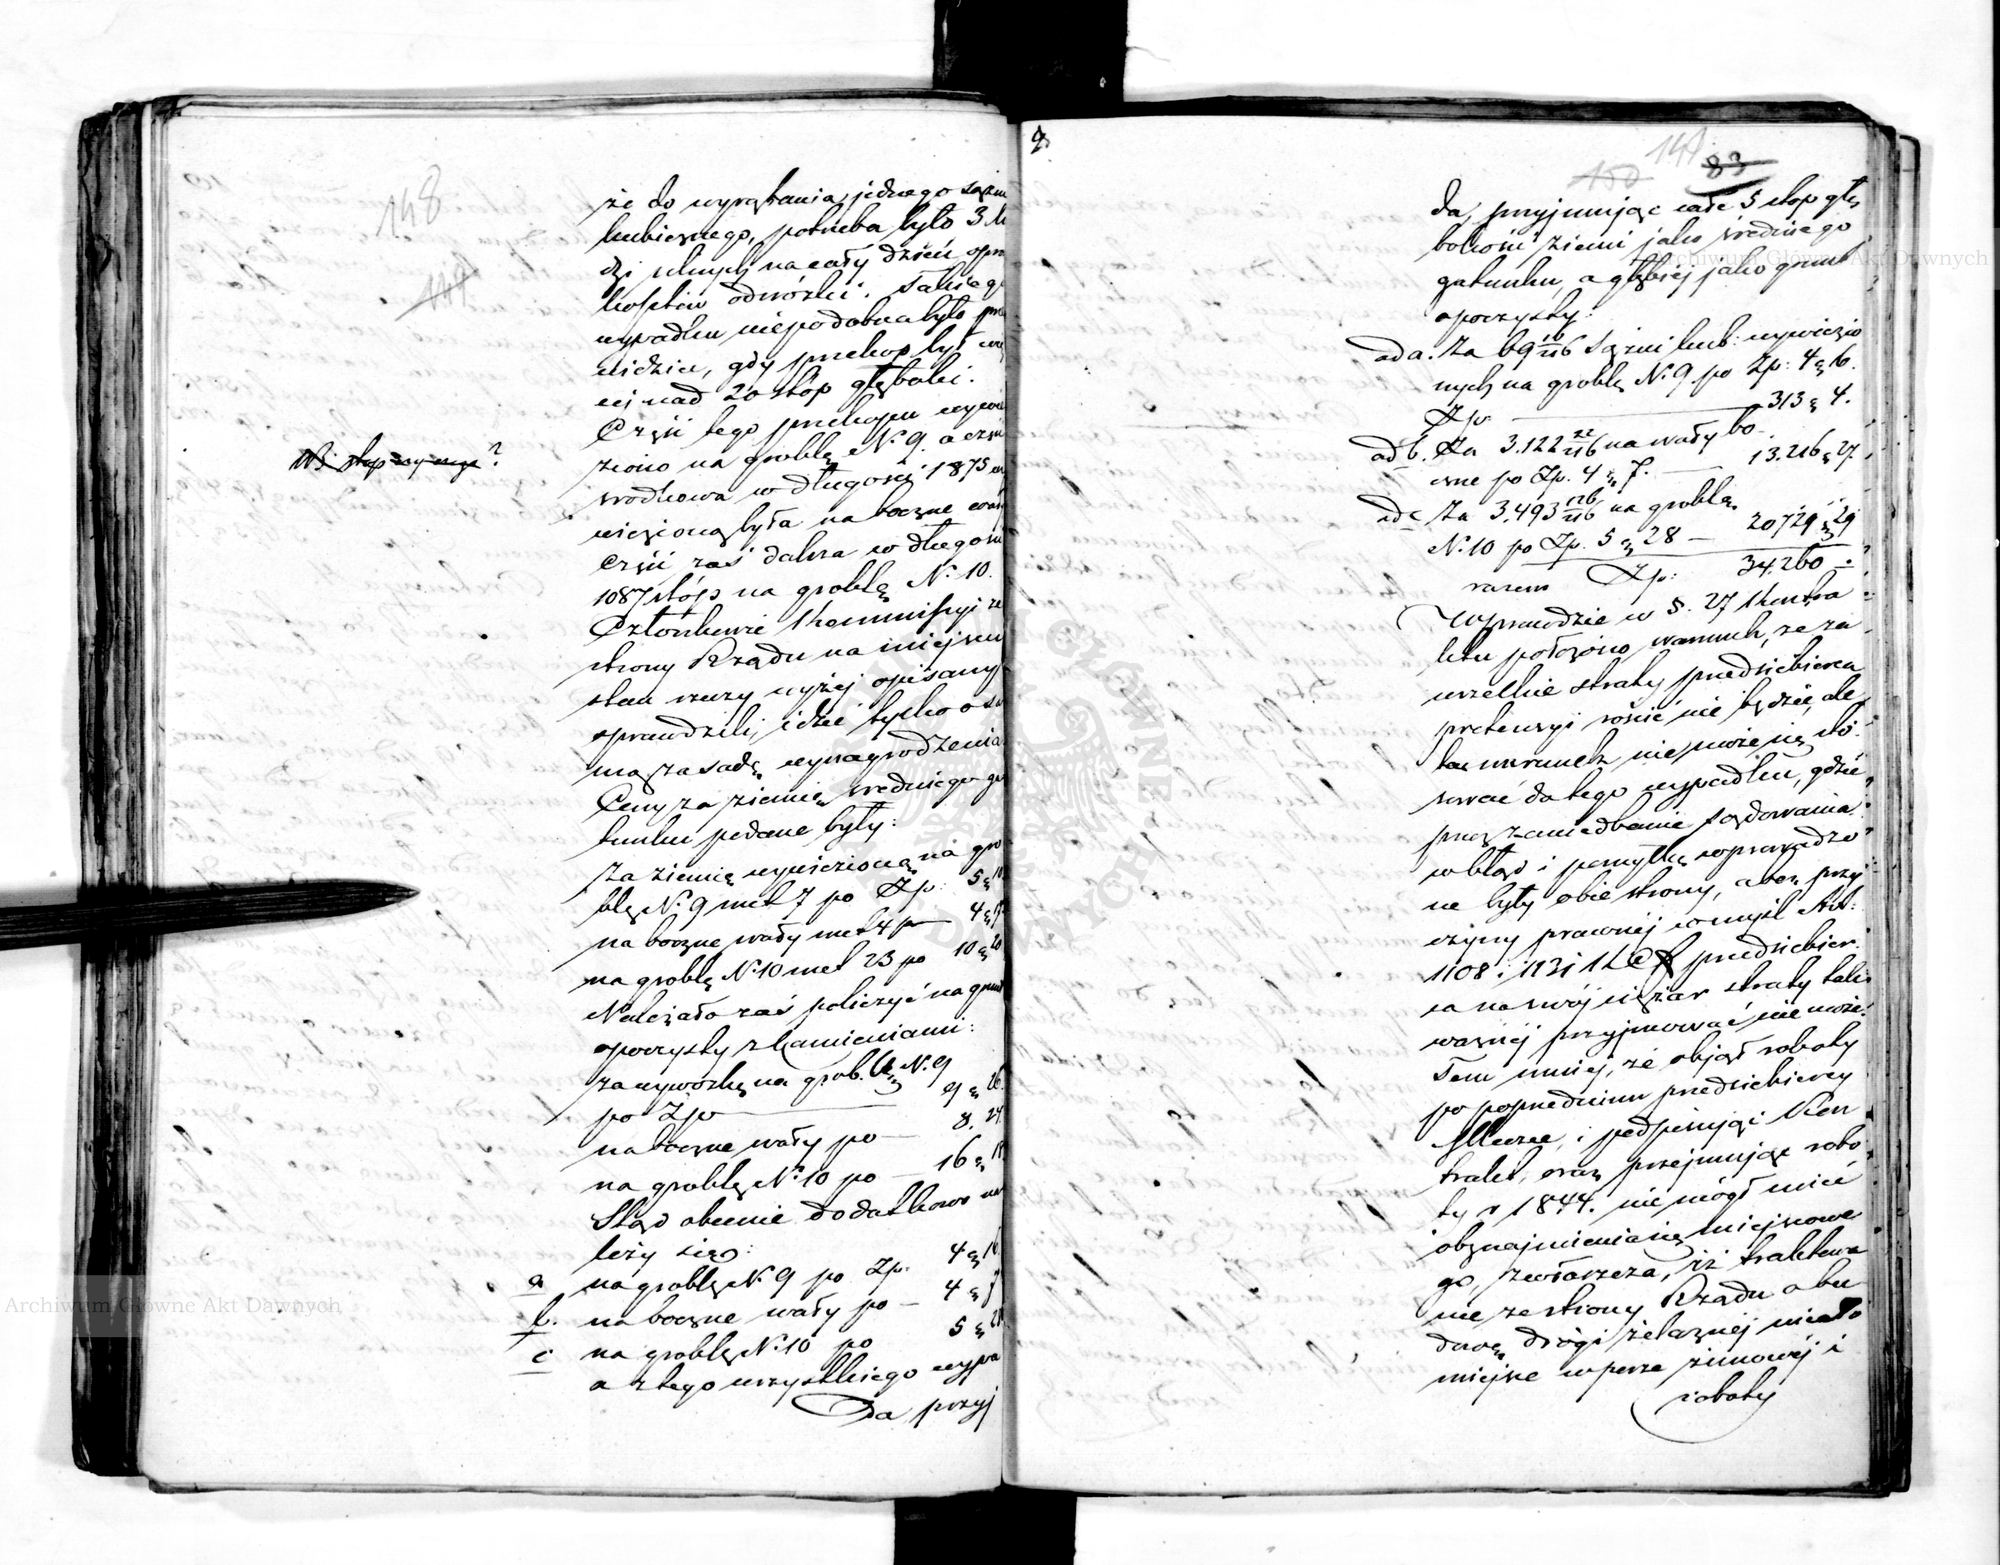 148
że do wyrąbania jednego sążnia
kubicznego, potrzeba było 3 lu
dzi silnych na cały dzień opró
kosztów odwózki. Takiego
wypadku niepodobna było prze
widzieć, gdy przekop był wię
cej nad 20 stóp głęboki.
Część tego przekopu wywie
ziono na groblę N. 9. a część
środkowa w długości 1875 wy
wiezioną była na boczne wały
część zaś dalsza w długości
1087 stóp na groblę N. 10.
Członkowie Kommissyi ze
strony Rządu na miejscu
stan rzeczy wyżej opisany
sprawdzili, idzie tylko o sa
mą zasadę wynagrodzenia
Ceny za ziemię średniego ga
tunku podane były:
Za ziemię wywiezioną na gro
blę N. 9 met 7 po Zp. 5 g 10
na boczne wały met 4 po 4 g 17
na groblę N. 10 met 23 po 10 g 20
Należało zaś policzyć na grunt
opoczysty z kamieniami:
za wywózkę na grob. N. 9
po Zp 9 g 26
na boczne wały po — 8. 24
na groblę N. 10 po — 16 g 18
Stąd obecnie dodatkowo na
leży się:
a na groblę N. 9 po Zp. 4 g 16
b. na boczne wały po — 4 g 7
c na groblę N. 10 po 5 g 28
a z tego wszystkiego wypa
da, przyj
83
da, przyjmując całe 5 stop głę
bokości ziemi jako średniego
gatunku, a głębiej jako grunt
opoczysty:
ad a. Za 69 10/216 sążni kub: wywiezio
nych na groblę N. 9 po Zp: 4 g 16.
Zp. — 313 g 4.
ad b. Za 3.122 22/216 na wały bo
czne po Zp. 4 g 7. — 13.216 g 27
ad c Za 3.493 126/216 na groblę
N. 10 po Zp. 5 g 28 — 20729 g 29
razem Zp: 34.260 —
Wprawdzie w §. 27 Kontra
ktu położono warunek, że za
wszelkie straty przedsiębiorca
pretensyi rościć nie będzie, ale
ten warunek nie może się sto
sować do tego wypadku, gdzie
przez zaniedbanie sądowania
w błąd i pomyłkę wprowadzo
ne były obie strony, a bez przy
czyny prawnej w myśl Art:
1108 i 1131 K C P przedsiębior
ca na swój ciężar straty tako
waśnej przyjmować nie może.
Tem mniej, że objął roboty
po poprzednim przedsiębiercy
i podpisując Kon
trakt, oraz przejmując robo
ty r 1844. nie mógł mieć
obznajmienia się miejscowe
go, zwłaszcza, iż traktowa
nie ze strony Rządu o bu
dowę drogi żelaznej miało
miejsce w porze zimowej i
roboty